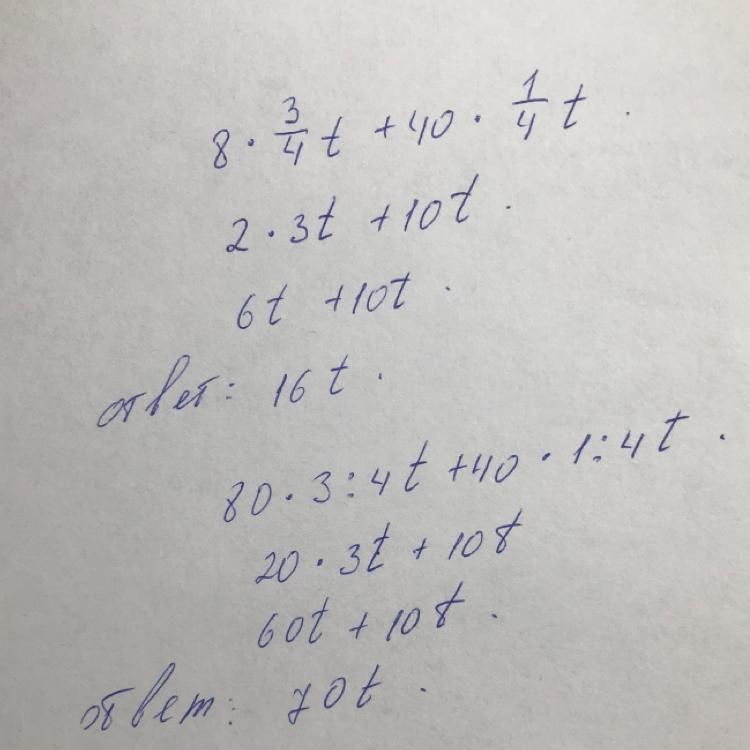 8 · 3/4 t + 40 · 1/4 t .
2 · 3t + 10t .
6t + 10t .
ответ: 16t .
80 · 3 : 4t + 40 · 1 : 4t .
20 · 3t + 10t
60t + 10t .
ответ: 70t .